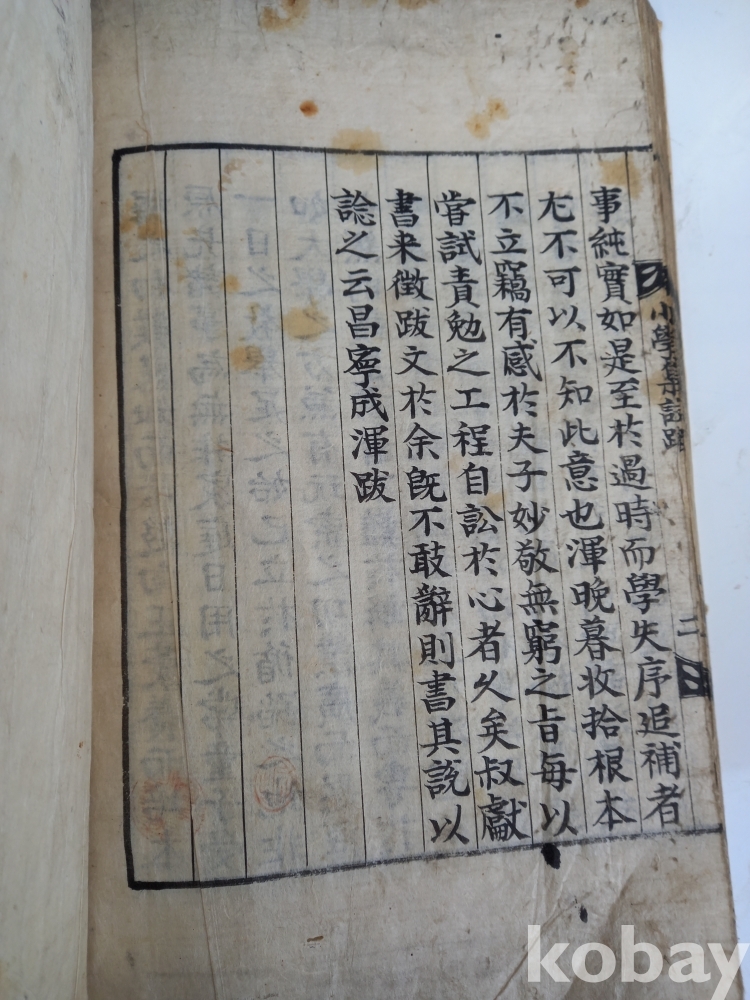 事純實如是至於過時而學失序追補者
尤不可以不知此意也渾晚暮收拾根本
不立竊有感於夫子妙敬無窮之旨每以
嘗試責勉之工程自訟於心者久矣叔獻
書来徵跋文於余既不敢辭則書其說以
諗之云昌寧成渾跋
小學集註跋
二
kobay